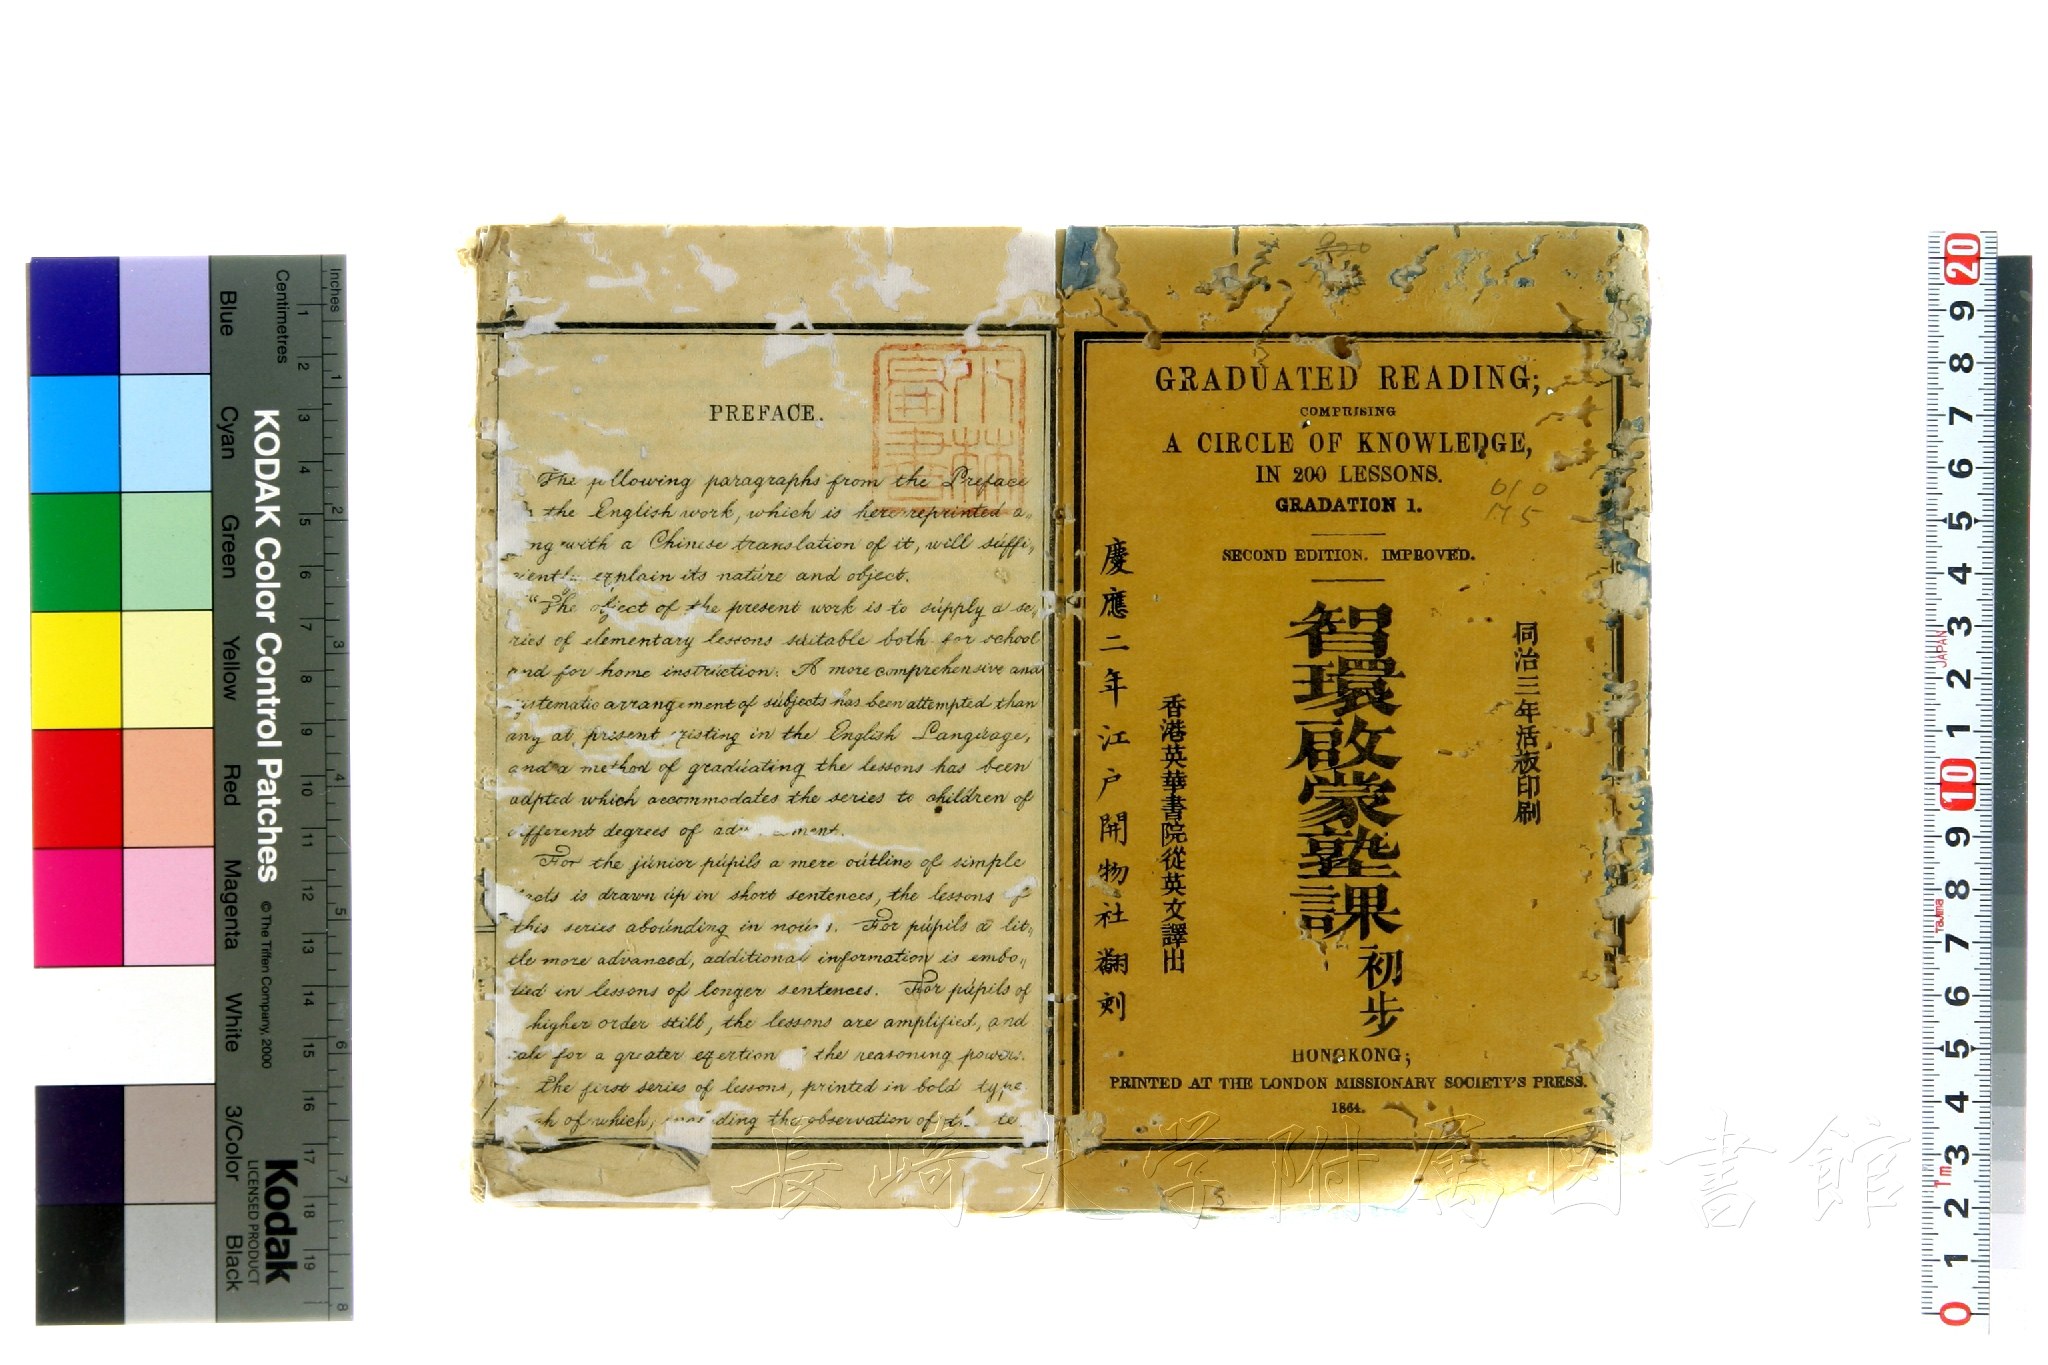 GRADUATED READING;
COMPRISING
A CIRCLE OF KNOWLEDGE,
IN 200 LESSONS.
GRADATION 1.
SECOND EDITION. IMPROVED.
同治三年活版印刷
智環啟蒙塾課初步
香港英華書院從英文譯出
慶應二年江戸開物社翻刻
HONGKONG;
PRINTED AT THE LONDON MISSIONARY SOCIETY'S PRESS.
1864.
PREFACE.
The following paragraphs from the Preface
the English work, which is here reprinted a-
ng with a Chinese translation of it, will suffi-
explain its nature and object.
"The object of the present work is to supply a se-
ries of elementary lessons suitable both for school
and for home instruction. A more comprehensive and
systematic arrangement of subjects has been attempted than
any at present existing in the English Language,
and a method of graduating the lessons has been
adpted which accommodates the series to children of
different degrees of
For the junior pupils a mere outline of simple
is drawn up in short sentences, the lessons of
this series abounding in nouns. For pupils a lit-
tle more advanced, additional information is embo-
died in lessons of longer sentences. For pupils of
higher order still, the lessons are amplified, and
for a greater exertion the reasoning powers.
The first series of lessons, printed in bold type
of which, the observation of
長崎大学附属図書館
KODAK Color Control Patches
© The Tiffen Company, 2000
Kodak
LICENSED PRODUCT
Inches
Centimetres
Blue
Cyan
Green
Yellow
Red
Magenta
White
3/Color
Black
1 2 3 4 5 6 7 8 9 10 11 12 13 14 15 16 17 18 19
1 2 3 4 5 6 7 8
20 9 8 7 6 5 4 3 2 1 10 9 8 7 6 5 4 3 2 1 0
JAPAN
Tajima